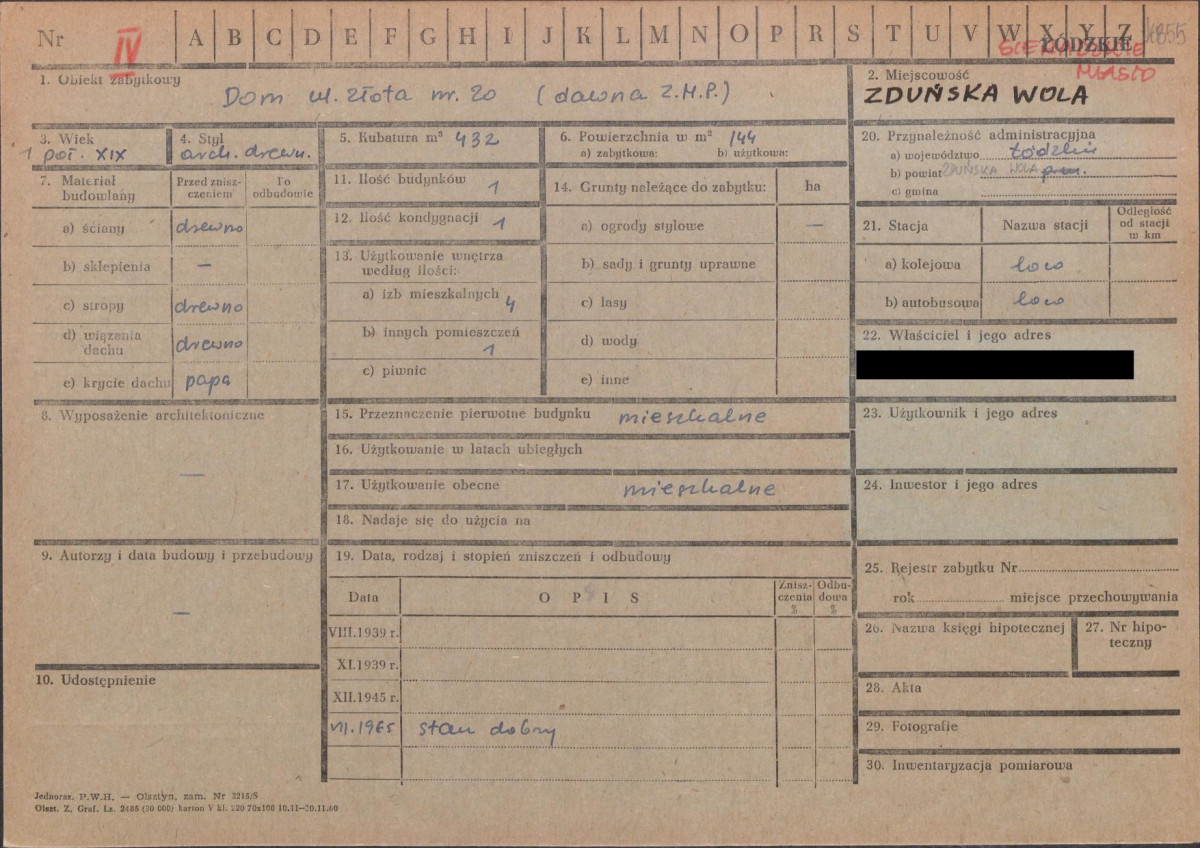 Nr IV A B C D E F G H I J K L M N O P R S T U V W X Y Z 4855
SIERADZKIE ŁÓDZKIE
MIASTO
1. Obiekt zabytkowy
Dom ul. Złota nr. 20 (dawna Z.M.P.)
2. Miejscowość
ZDUŃSKA WOLA
3. Wiek
1 poł. XIX
4. Styl
arch. drewn.
5. Kubatura m³ 432
6. Powierzchnia w m² 144
a) zabytkowa: b) użytkowa:
7. Materiał budowlany
Przed zniszczeniem
Po odbudowie
a) ściany drewno
b) sklepienia —
c) stropy drewno
d) wiązenia dachu drewno
e) krycie dachu papa
8. Wyposażenie architektoniczne
—
9. Autorzy i data budowy i przebudowy
—
10. Udostępnienie
11. Ilość budynków 1
12. Ilość kondygnacji 1
13. Użytkowanie wnętrza według ilości:
a) izb mieszkalnych 4
b) innych pomieszczeń 1
c) piwnic
14. Grunty należące do zabytku: ha
a) ogrody stylowe —
b) sady i grunty uprawne
c) lasy
d) wody
e) inne
15. Przeznaczenie pierwotne budynku mieszkalne
16. Użytkowanie w latach ubiegłych
17. Użytkowanie obecne mieszkalne
18. Nadaje się do użycia na
19. Data, rodzaj i stopień zniszczeń i odbudowy
Data OPIS Zniszczenia % Odbudowa %
VIII.1939 r.
XI.1939 r.
XII.1945 r.
VII.1965 stan dobry
20. Przynależność administracyjna
a) województwo Łódzkie
b) powiat ZDUŃSKA WOLA
c) gmina
21. Stacja Nazwa stacji Odległość od stacji w km
a) kolejowa loco
b) autobusowa loco
22. Właściciel i jego adres
23. Użytkownik i jego adres
24. Inwestor i jego adres
25. Rejestr zabytku Nr
rok miejsce przechowywania
26. Nazwa księgi hipotecznej
27. Nr hipoteczny
28. Akta
29. Fotografie
30. Inwentaryzacja pomiarowa
Jednoraz. P.W.H. — Olsztyn, zam. Nr 3215/S
Olszt. Z. Graf. Lz. 2485 (30 000) karton V kl. 220 70x100 10.11—30.11.60